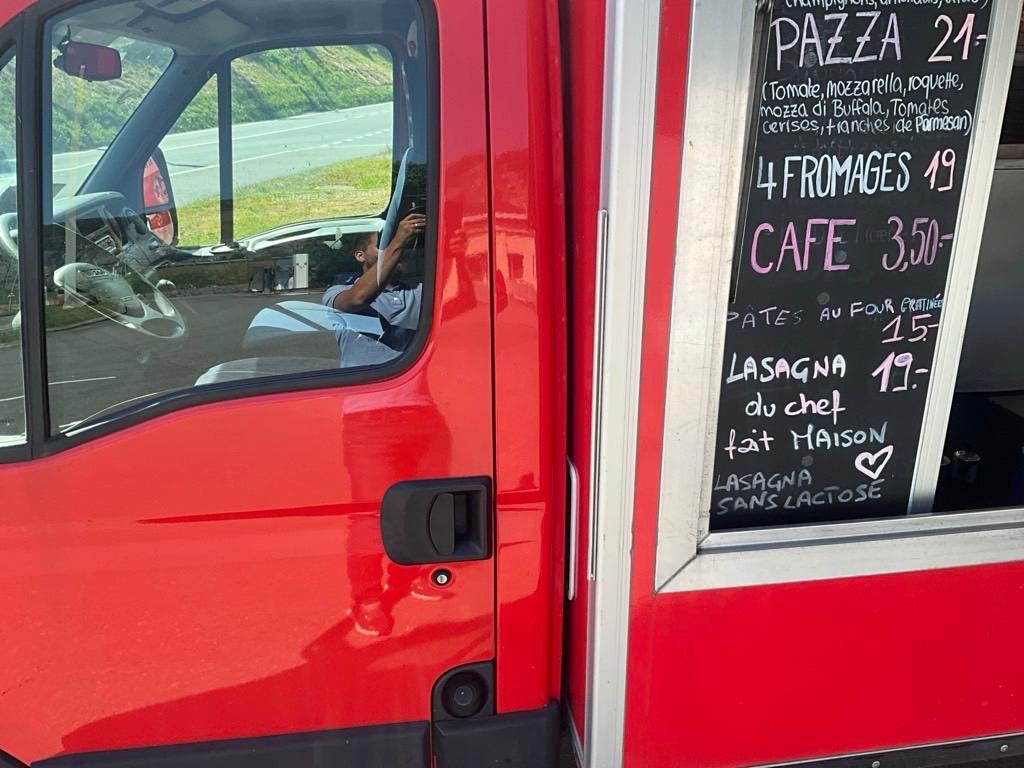 (champignons,
PAZZA 21.-
(Tomate, mozzarella, roquette,
mozza di Buffala, Tomates
cerises, tranches de Parmesan)
4 FROMAGES 19
CAFE 3,50.-
PÂTES AU FOUR GRATINÉE
15.-
LASAGNA 19.-
du chef
fait MAISON
LASAGNA
SANS LACTOSE